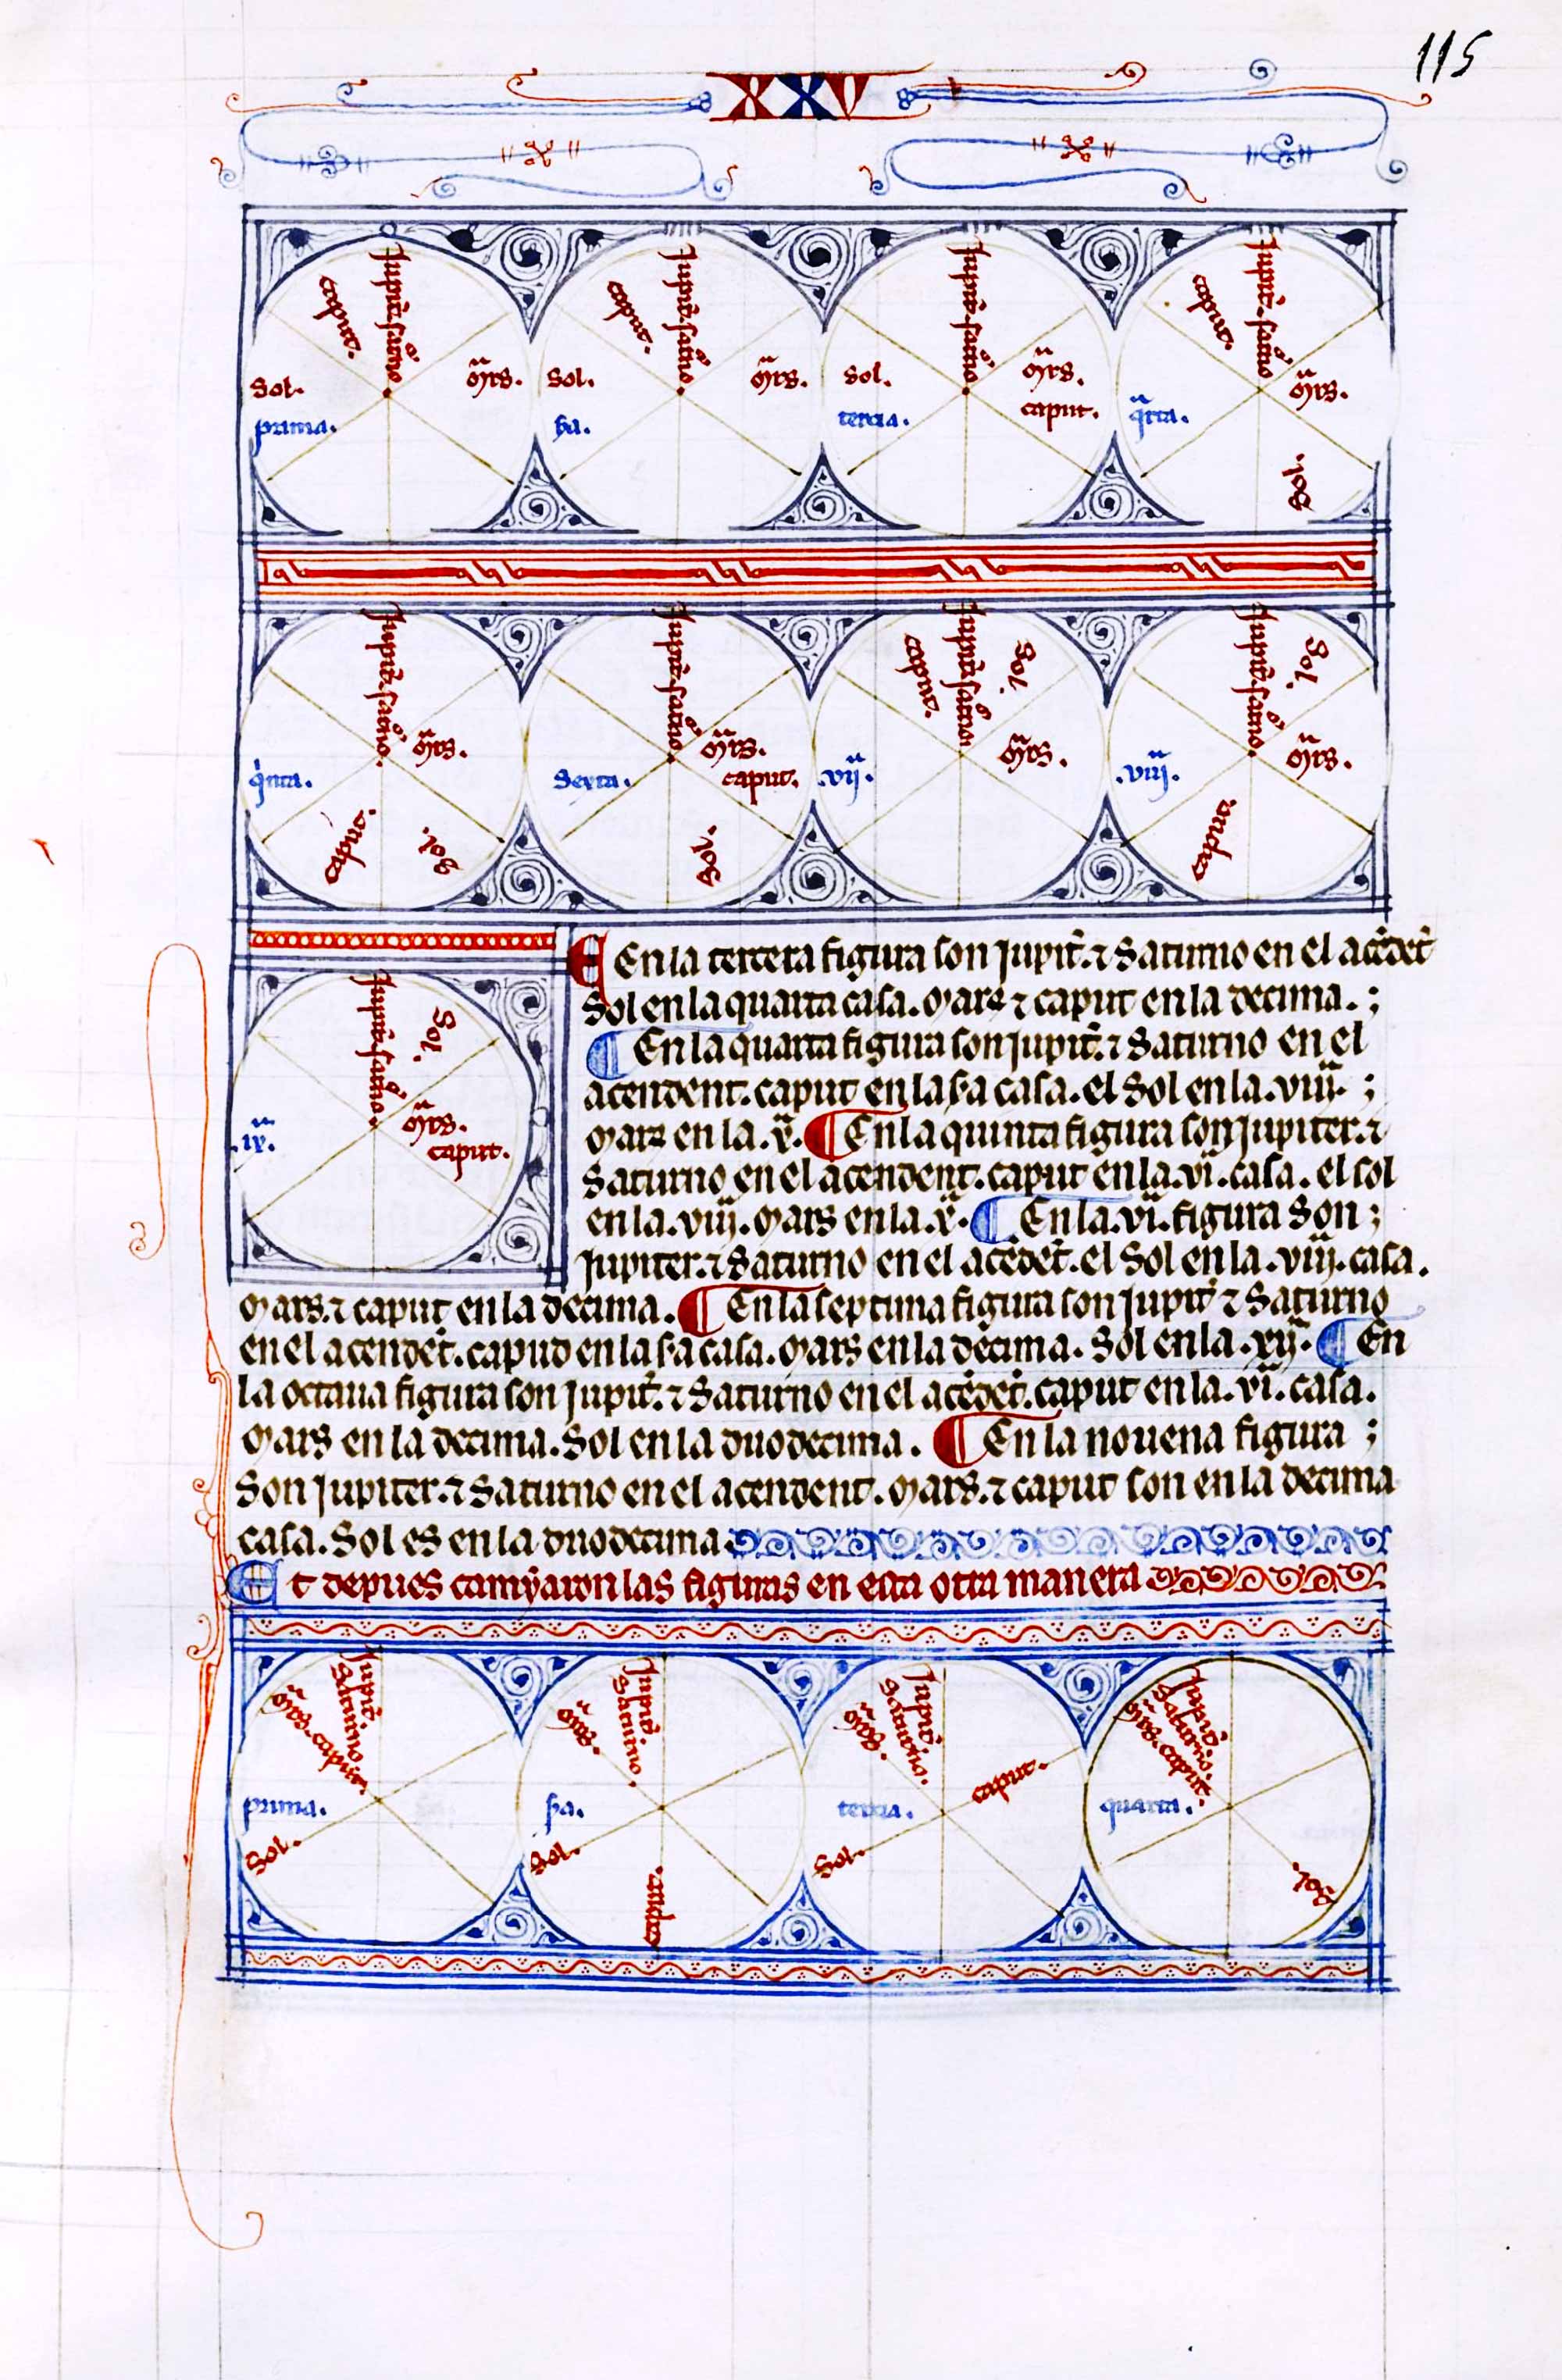 115
XXV
Jupit̃. satno᷑. caput. Sol. mr̃s. prima.
Jupit̃. satno᷑. caput. Sol. mr̃s. sa.
Jupit̃. satno᷑. Sol. mr̃s. caput. tercia.
Jupit̃. satno᷑. caput. mr̃s. Sol. qr̃ta.
Jupit̃. satno᷑. mr̃s. qinta. caput. Sol.
Jupit̃. satno᷑. mr̃s. caput. Sexta. Sol.
Jupit̃. satno᷑. caput. Sol. mr̃s. .vij.
Jupit̃. satno᷑. Sol. mr̃s. .viij. caput.
Jupit̃. satno᷑. Sol. mr̃s. caput. .ix.
En la tercera figura son jupit̃. ⁊ Saturno en el acẽdẽt
Sol en la quarta casa. mars ⁊ caput en la decima. ;
¶ En la quarta figura son jupit̃. ⁊ Saturno en el
acendent. caput en la sa casa. el Sol en la .viij. ;
mars en la .x. ¶ En la quinta figura son jupiter. ⁊
Saturno en el acendent. caput en la .vi. casa. el sol
en la .viij. mars en la .x. ¶ En la .vi. figura Son ;
jupiter. ⁊ Saturno en el acẽdẽt. el Sol en la .viij. casa.
mars. ⁊ caput en la decima. ¶ En la septima figura son jupit̃ ⁊ Saturno
en el acendẽt. capud en la sa casa. mars en la decima. Sol en la .xij. ¶ En
la octaua figura son jupit̃. ⁊ Saturno en el acẽdẽt. caput en la .vi. casa.
mars en la decima. Sol en la duodecima. ¶ En la nouena figura ;
Son jupiter. ⁊ Saturno en el acendent. mars. ⁊ caput son en la decima
casa. Sol es en la duodecima
Et depues camyaron las figuras en esta otra manera
Jupit̃. Saturno. mr̃s. caput. prima. Sol.
Jupit̃. Saturno. mr̃s. sa. Sol. caput.
Jupit̃. Saturno. mr̃s. caput. tercia. Sol.
Jupit̃. Saturno. mr̃s. caput. quarta. Sol.